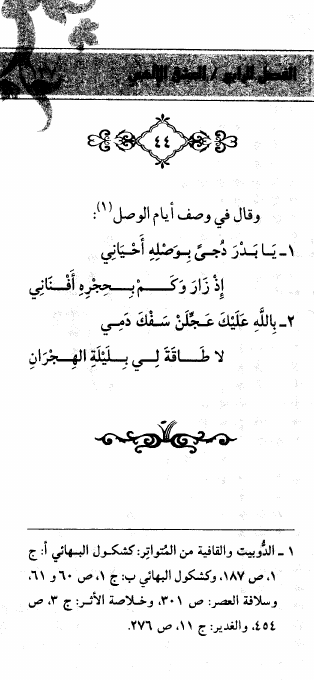 الفصل الرابع /
٤٤
وقال في وصف أيام الوصل(١):
١ـ يَا بَدْرَ دُجىً بِوَصْلِهِ أَحْيَانِي
إِذْ زَارَ وَكَمْ بِحِجْرِهِ أَفْنَانِي
٢ـ بِاللَّهِ عَلَيْكَ عَجِّلَنْ سَفْكَ دَمِي
لا طَاقَةَ لِي بِلَيْلَةِ الهِجْرَانِ
١ ـ الدُّوبيت والقافية من المُتواتِر: كشكول البهائي أ: ج
١، ص ١٨٧، وكشكول البهائي ب: ج ١، ص ٦٠ و ٦١،
وسلافة العصر: ص ٣٠١، وخلاصة الأثر: ج ٣، ص
٤٥٤، والغدير: ج ١١، ص ٢٧٦.